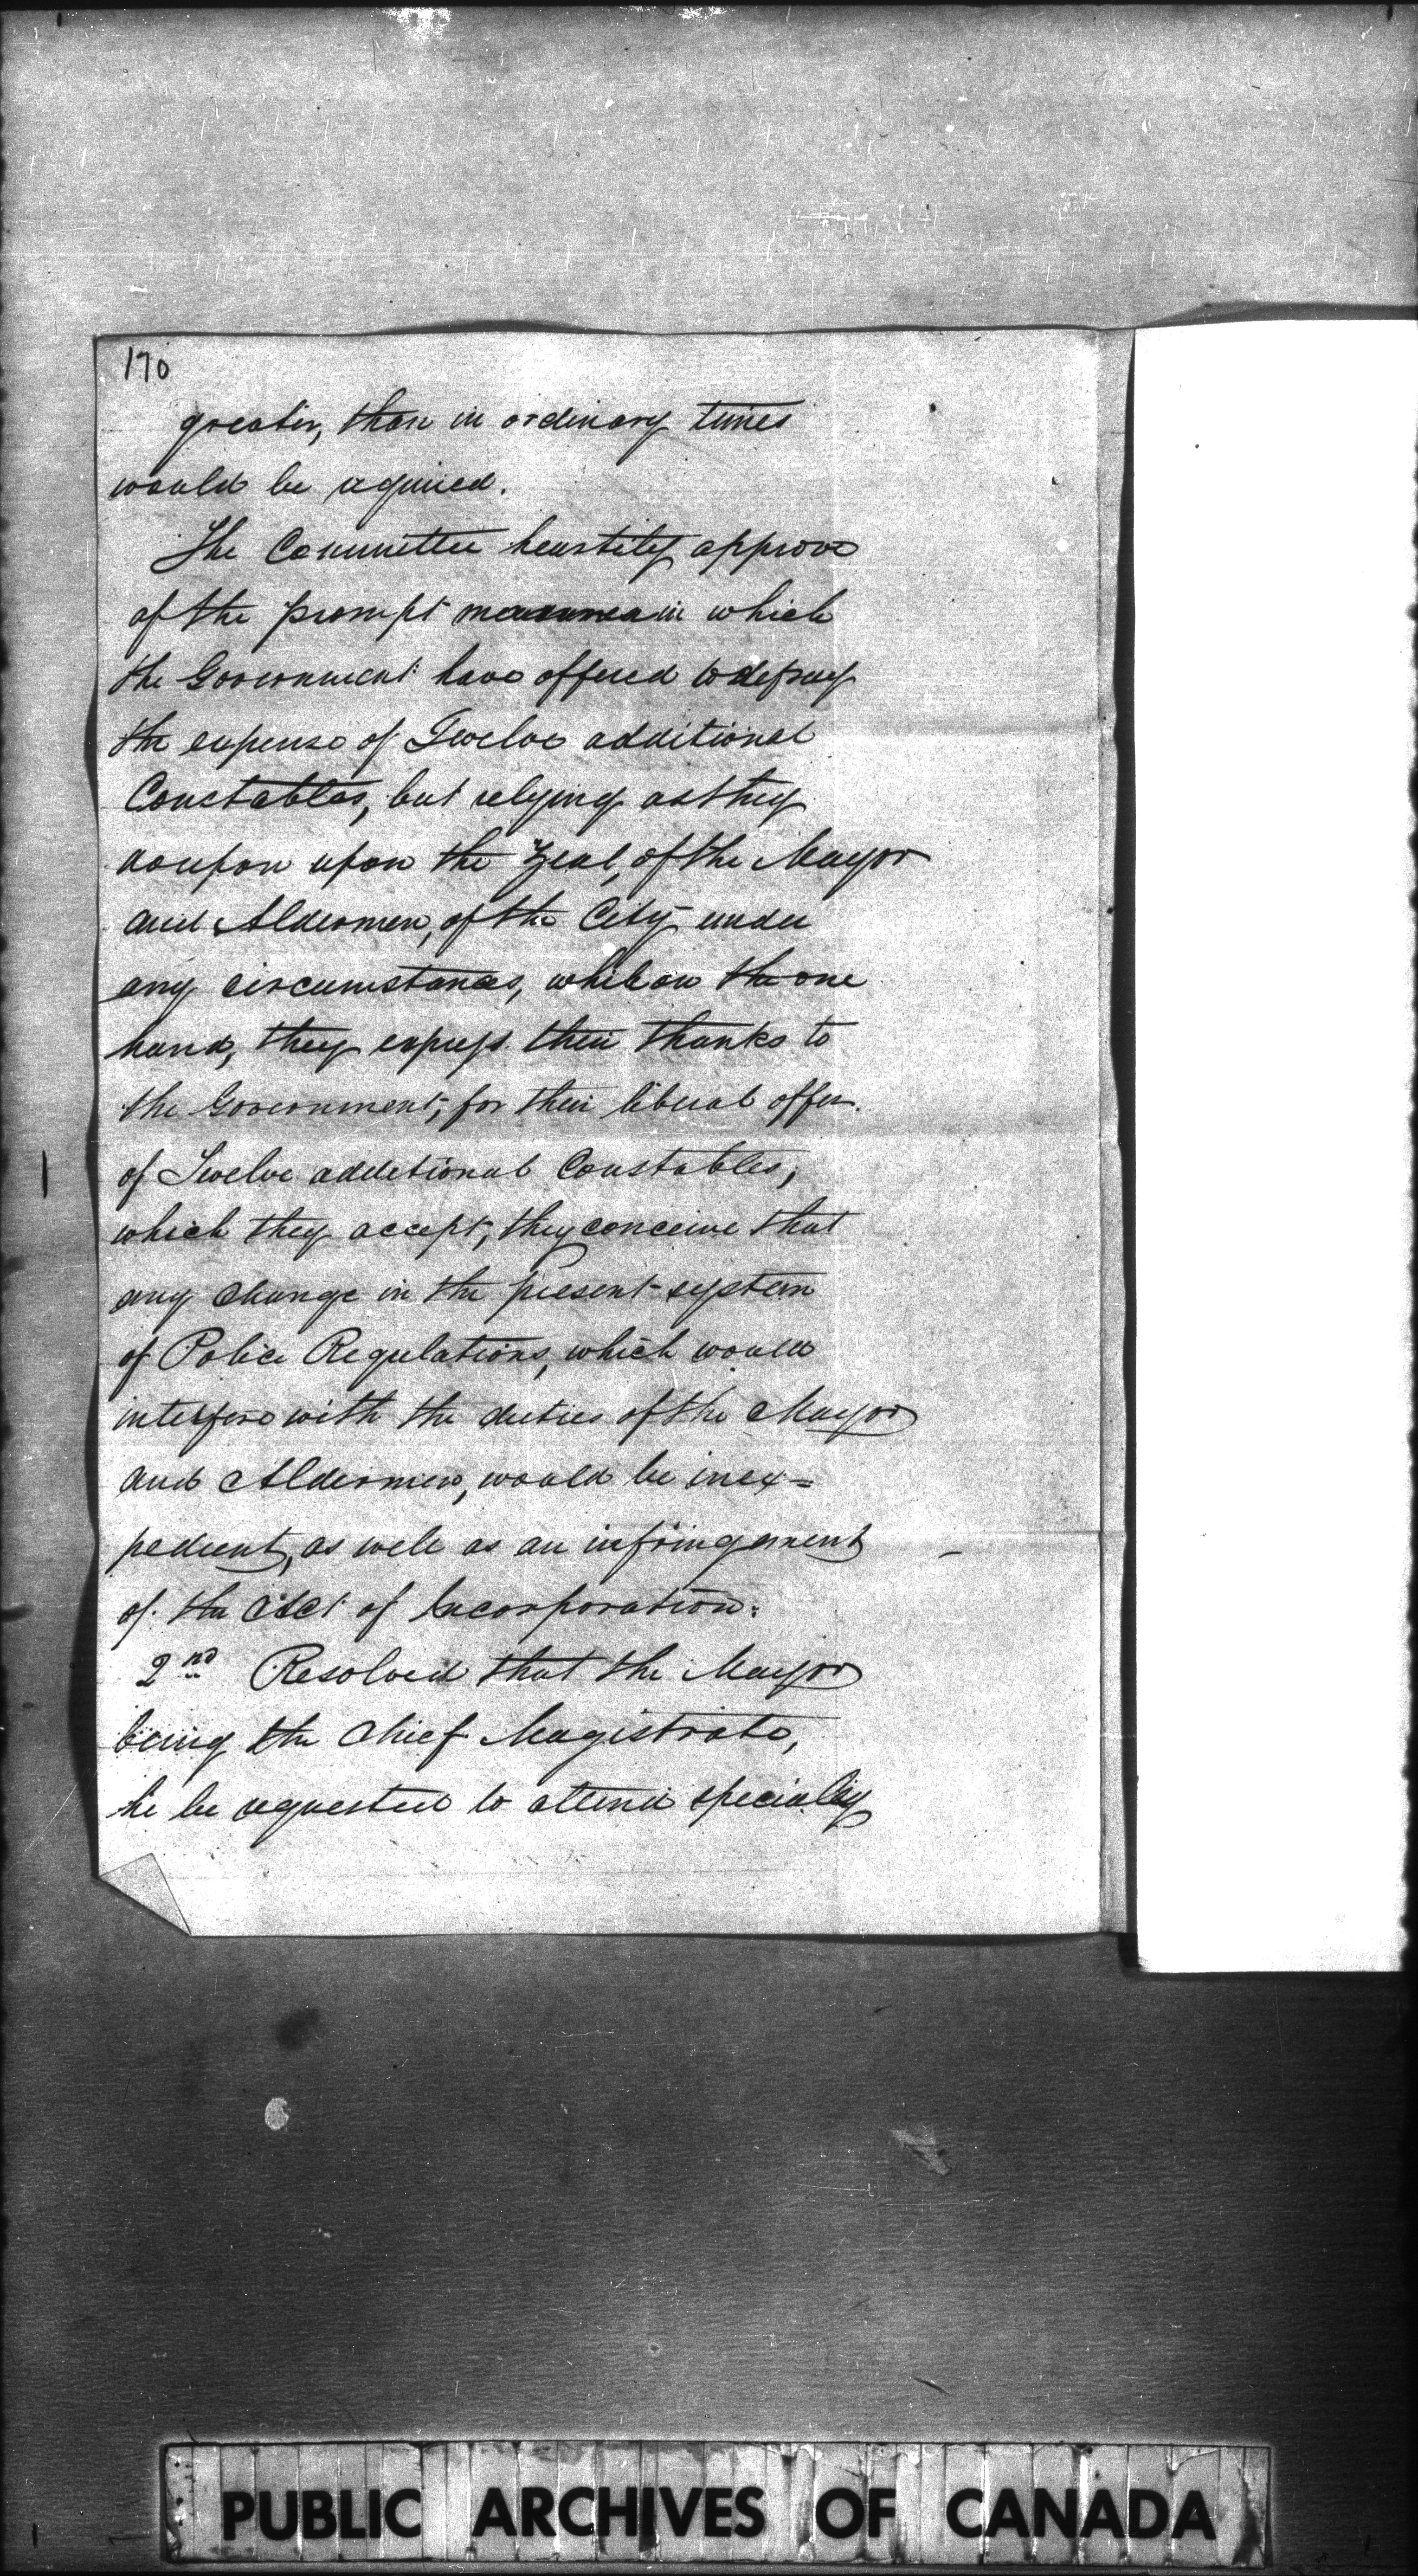 170
greater, than in ordinary times
would be required.
The Committee heartily approve
of the prompt manner in which
the Government have offered to defray
the expense of Twelve additional
Constables, but relying as they
do upon upon the zeal, of the Mayor
and Aldermen, of the City under
any circumstances, while on the one
hand, they express their thanks to
the Government, for their liberal offer
of Twelve additional Constables,
which they accept, they conceive that
any change in the present system
of Police Regulations, which would
interfere with the duties of the Mayor
and Aldermen, would be inex=
pedient, as well as an infringement
of the Act of Incorporation.
2nd Resolved that the Mayor
being the Chief Magistrate,
he be requested to attend specially
PUBLIC ARCHIVES OF CANADA